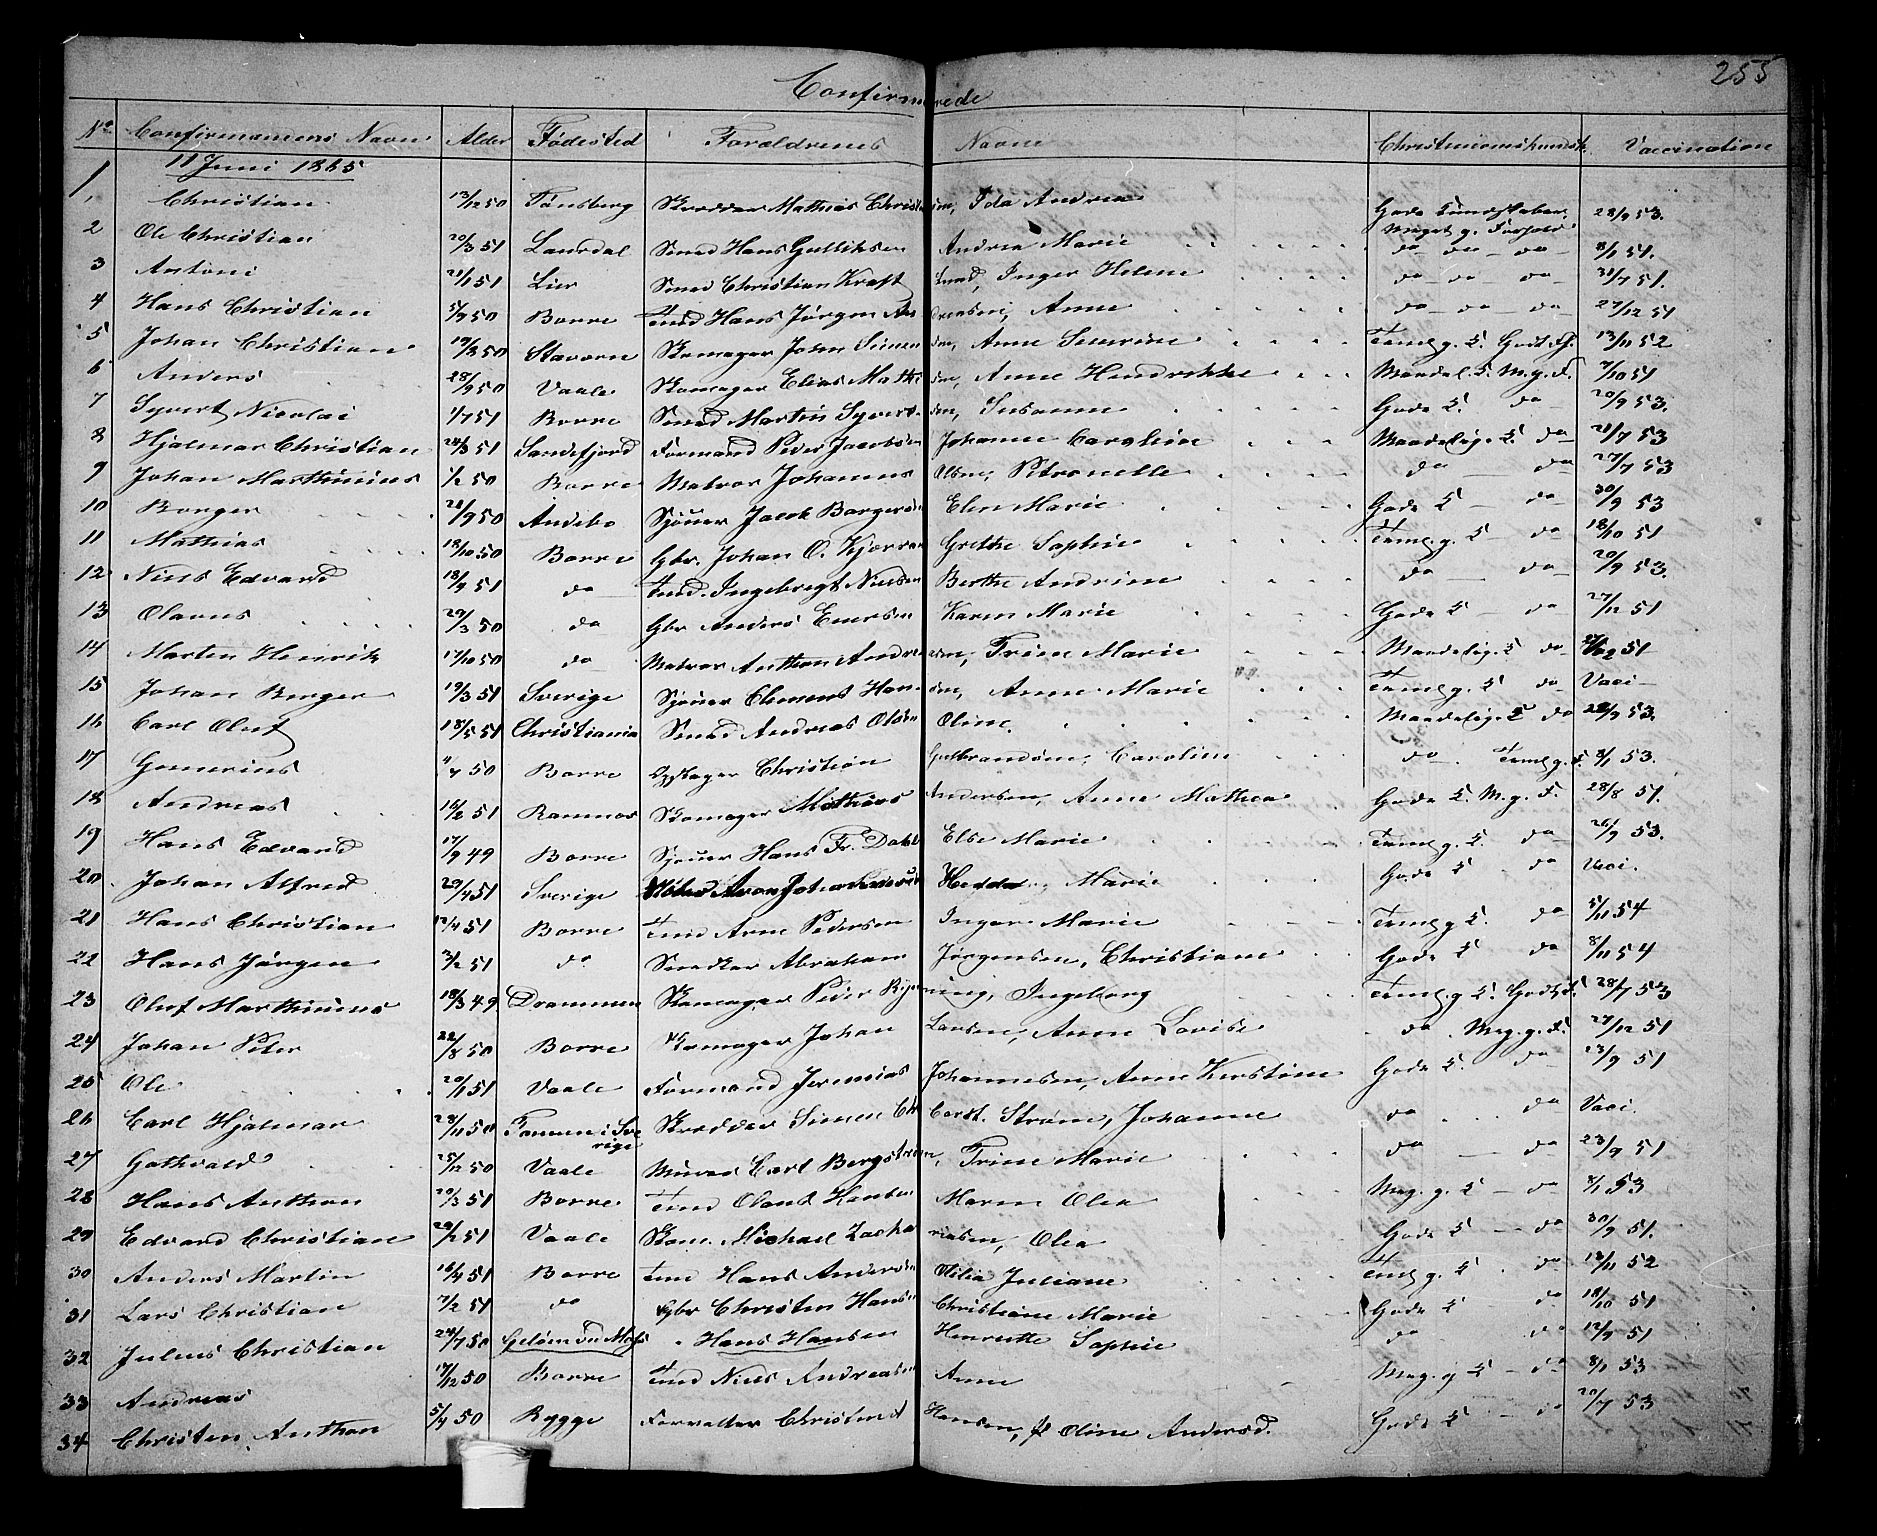 255
Confirmerede
No Confirmanens Navn Alder Fødested Forældrenes Navne Christiomskundsk. Vaccination
11 Juni 1865
1, Christian 13/12 50 Tønsberg Skrædder Mathias Christiansen, Ida Andrea Gode Kundskaber Meget g. Forhold 28/9 53.
2 Ole Christian 20/3 51 Laurdal Smed Hans Gulliksen Andrea Marie do do do 8/1 51.
3 Antoni 21/1 51 Lier Smed Christian Kraft Inger Helene do do do 31/7 51.
4 Hans Christian 5/9 50 Borre Inds Hans Jørgen Andreasen, Anne do do do 27/12 51
5 Johan Christian 19/3 50 Stavern Skomager John Simensen, Anne Severine Temlg. K. Godt F. 13/11 52
6 Anders 28/9 50 Vaale Skomager Elias Mathisen, Anne Hendrikke Maadel. K. M. g. F. 7/10 51
7 Syvert Nicolai 1/7 51 Borre Smed Martin Syvertsen, Susanne Gode K. do 20/9 53.
8 Hjalmar Christian 24/3 51 Sandefjord Formand Peder Jacobsen Johanne Caroline Maadelig. K. do 21/7 53
9 Johan Marthinius 1/2 50 Borre Matros Johannes Olsen, Petronelle do do 27/7 53
10 Borger 21/9 50 Andebo Sjøuer Jacob Borgersen Elen Marie Gode K do 30/9 53
11 Mathias 18/10 50 Borre Gbr. Johan O. Kjærran Grethe Sophie Temlg. K do 18/10 51
12 Niels Edvard 18/9 51 do Inds. Ingebregt Nielsen Berthe Andrine do do 20/9 53.
13 Olavus 29/3 50 do Gbr Anders Enersen Karen Marie Gode K do 27/12 51
14 Martin Henrik 17/10 50 do Matros Anthon Andreasen, Trine Marie Maadelig. K do 51
15 Johan Berger 19/3 51 Sverige Sjøuer Clement Hansen, Anne Marie Temlg. K do Vaci
16 Carl Oluf 18/5 51 Christiania Smed Andreas Olsen Oline. Maadelig. K do 28/9 53.
17 Gomerius 4/7 50 Borre Opsager Christian Gulbrandsen, Caroline do Temlg. F. 8/1 53.
18 Andreas 16/2 51 Ramnæs Skomager Mathias Andersen, Anne Mathea Gode K. M. g. F. 28/8 51.
19 Hans Edvard 17/9 49 Borre Sjøuer Hans Fr. Dahl Else Marie Temlg. K do 26/9 53.
20 Johan Alfred 29/4 51 Sverige Hedda, Marie Gode K do Vaci.
21 Hans Christian 12/4 51 Borre Inds Arne Pedersen Inger Marie Temlg K. do 5/11 54
22 Hans Jørgen 3/2 51 do Snedker Abraham Jørgensen, Christiane Gode K do 8/11 54
23 Oluf Marthinius 18/3 49 Drammen Skomager Peder Ingeborg Temlg. K. Godt F. 28/7 53
24 Johan Peter 22/8 50 Borre Skomager Johan Larsen, Anne Lovise do. Meg. g. F. 27/12 51
25 Ole 20/1 51 Vaale Formand Jeremias Johannesen, Anne Kirstine Gode K. do 23/9 51
26 Carl Hjalmar 28/11 50 i Sverige Skrædder Simen Chr Carst. Strøm, Johanne do do Vaci.
27 Gothvald 25/12 50 Vaale Murer Carl Bergstrøm, Trine Marie do do 23/9 51
28 Hans Anthon 20/3 51 Borre Inds Olaus Hansen Maren Olea Meg. g. K do 8/1 53
29 Edvard Christian 20/2 51 Vaale Skom. Michael Zachariasen, Olea Gode K do 30/9 51.
30 Anders Martin 16/4 51 Borre Inds Hans Andersen Otilia Juliane Temlg. K. do 13/11 52
31 Lars Christian 7/2 51 do Gbr Christen Hansen Christiane Marie Gode K do 18/10 51
32 Julius Christian 24/7 50 Moss " Hans Hansen Henriette Sophie do do 12/9 51
33 Andreas 17/12 50 Borre Inds Niels Andreasen Anne Meg. g K do 8/1 53
34 Christen Anthon 5/4 50 Rygge Forvalter Christen A Hansen, Oline Andersd. Gode K do 20/7 53